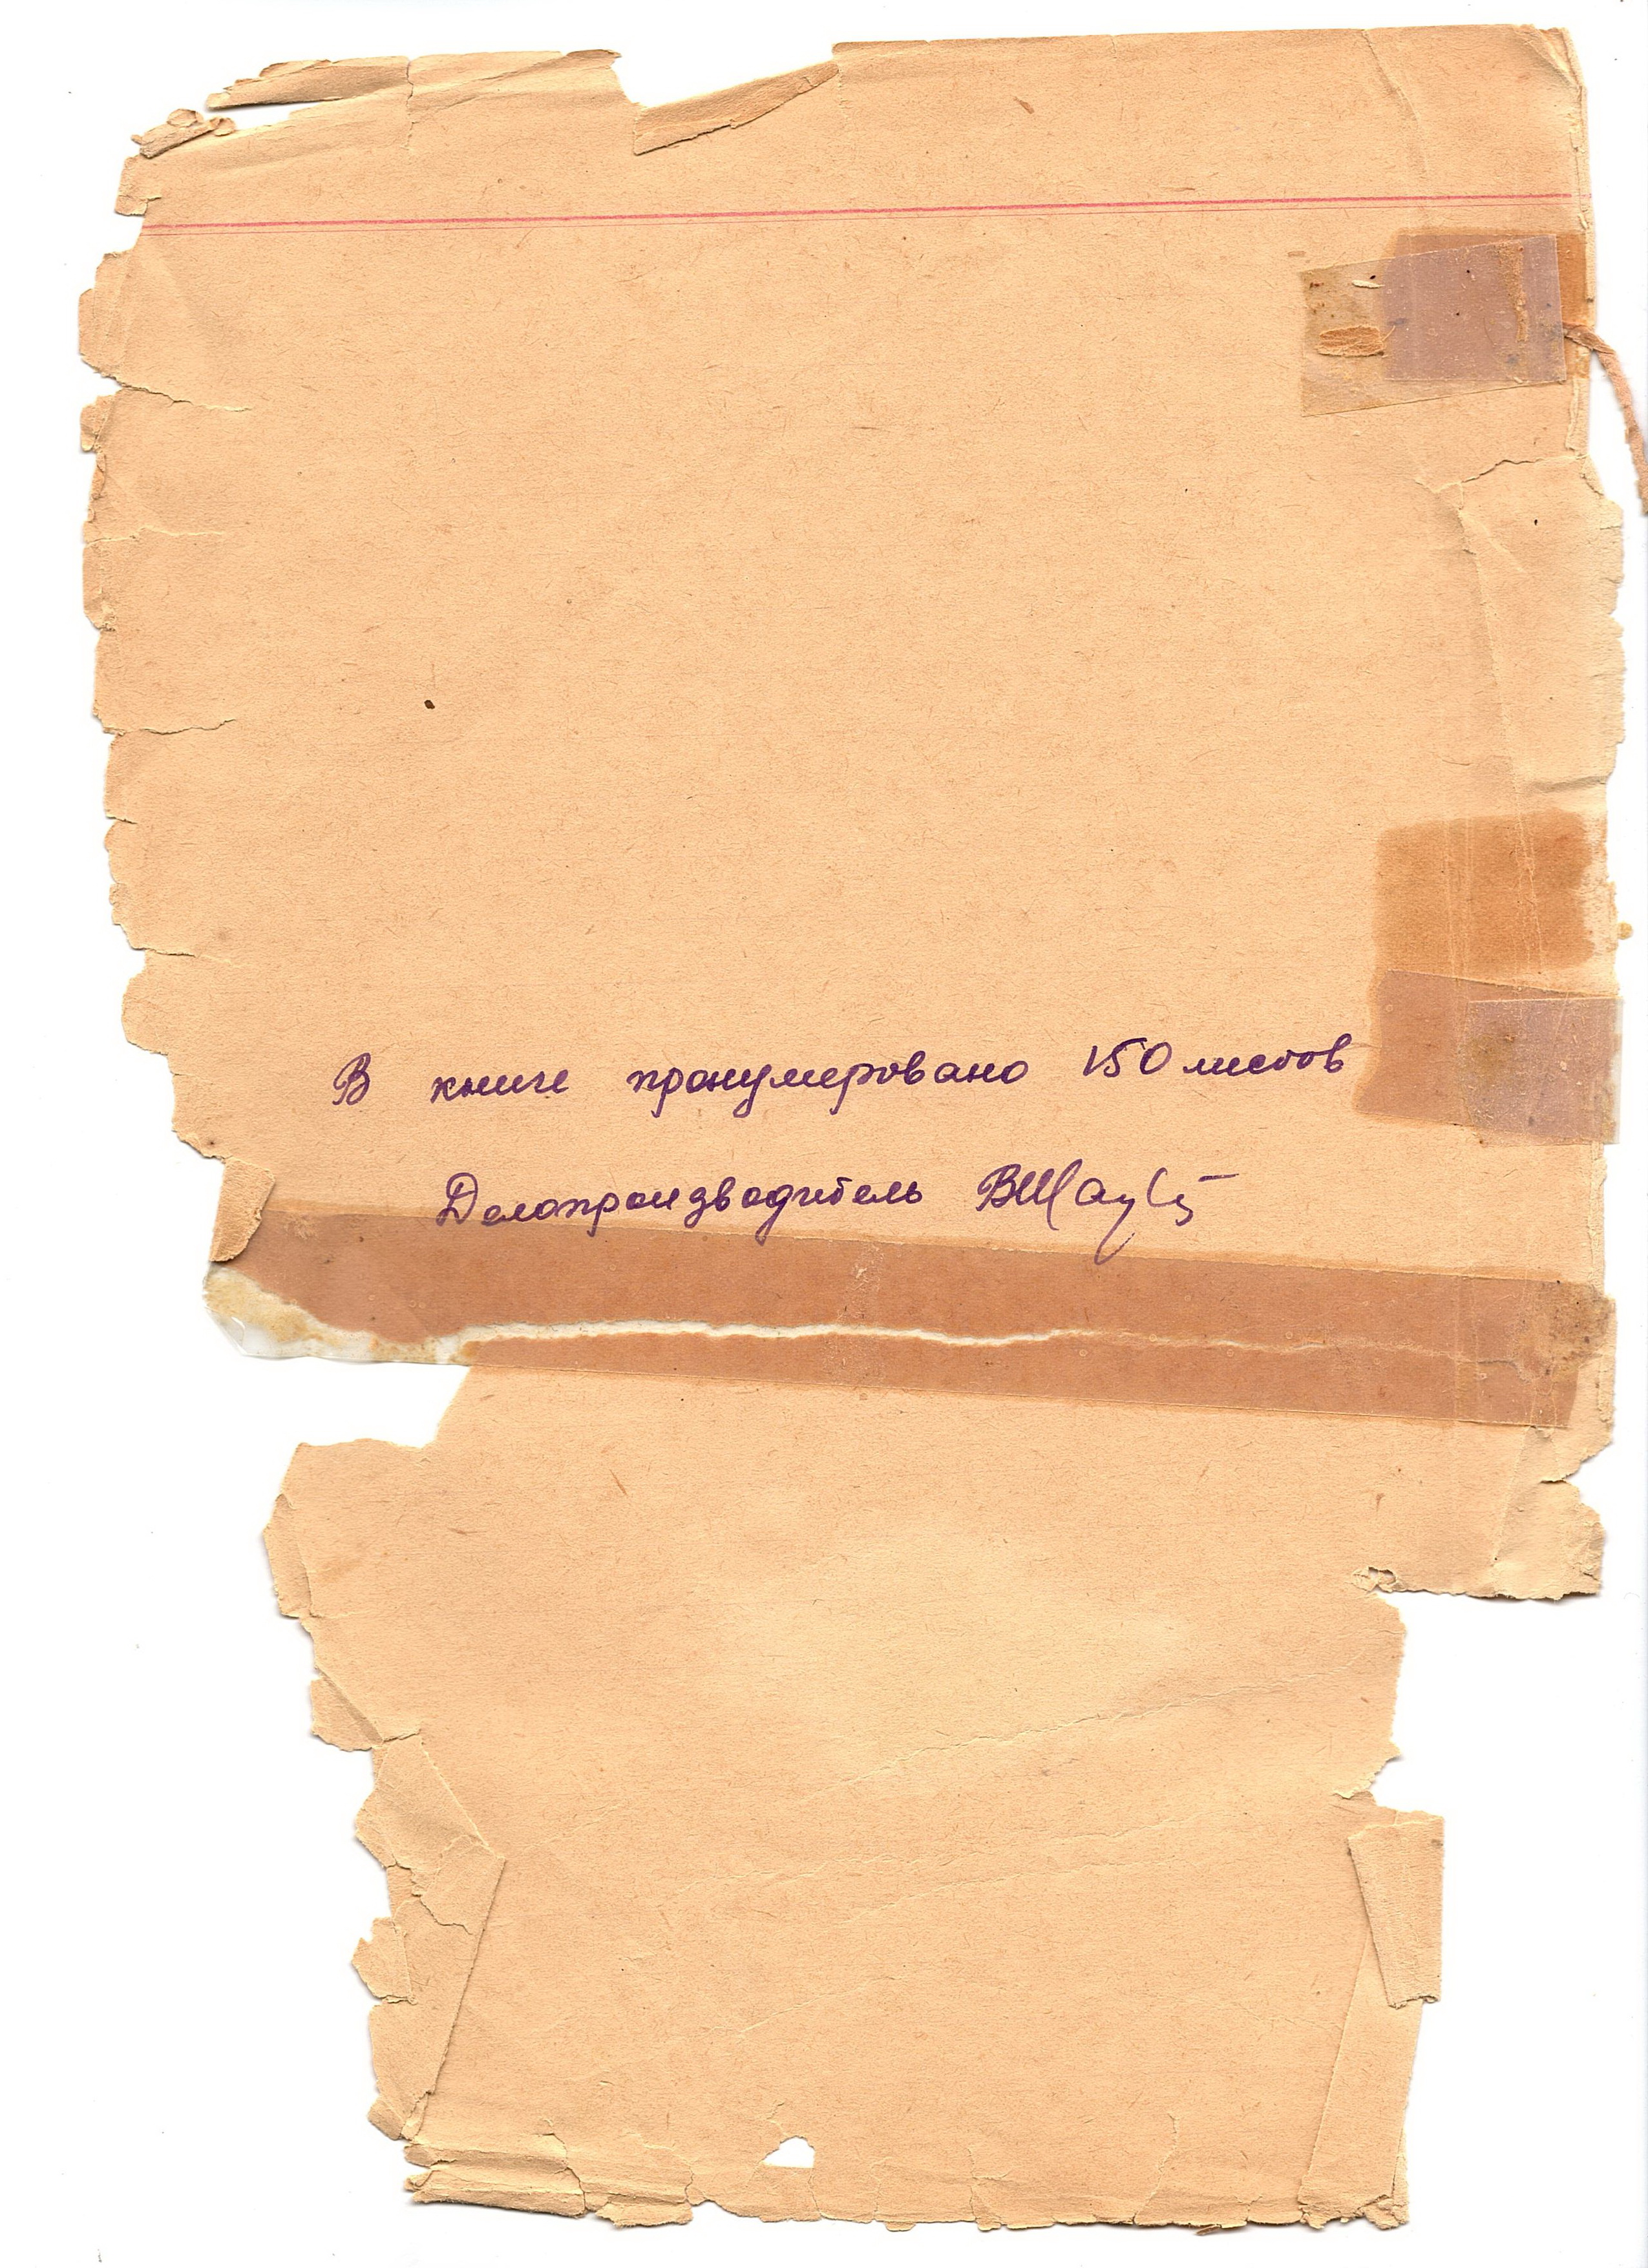 В книге пронумеровано 150 листов
Делопроизводитель